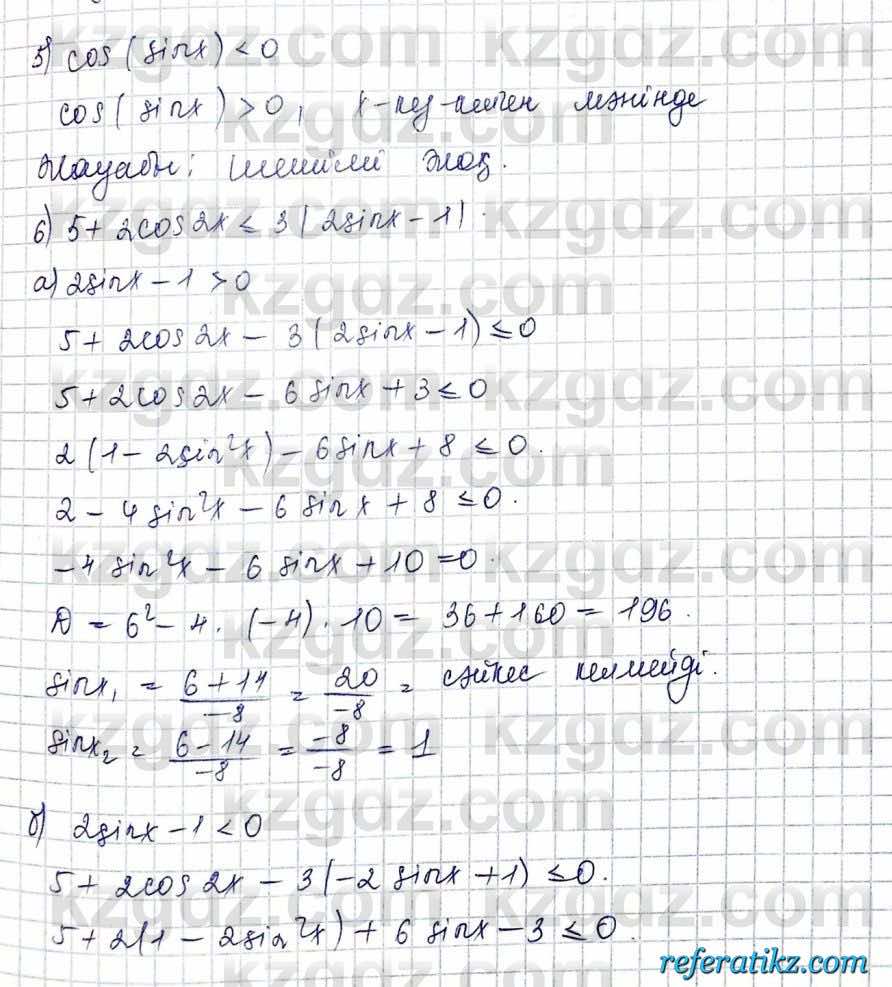 5) cos(sinx) < 0
cos(sinx) > 0, x-кез-келген мәнінде
Жауабы: Шешімі жоқ.
6) 5 + 2cos2x ≤ 3|2sinx - 1|.
а) 2sinx - 1 > 0
5 + 2cos2x - 3(2sinx - 1) ≤ 0
5 + 2cos2x - 6sinx + 3 ≤ 0
2(1 - 2sin²x) - 6sinx + 8 ≤ 0.
2 - 4sin²x - 6sinx + 8 ≤ 0.
-4sin²x - 6sinx + 10 = 0.
D = 6² - 4·(-4)·10 = 36 + 160 = 196.
sinx₁ = (6+14)/(-8) = 20/(-8) = сәйкес келмейді.
sinx₂ = (6-14)/(-8) = (-8)/(-8) = 1
б) 2sinx - 1 < 0
5 + 2cos2x - 3(-2sinx + 1) ≤ 0.
5 + 2(1 - 2sin²x) + 6sinx - 3 ≤ 0.
kzgdz.com
referatikz.com